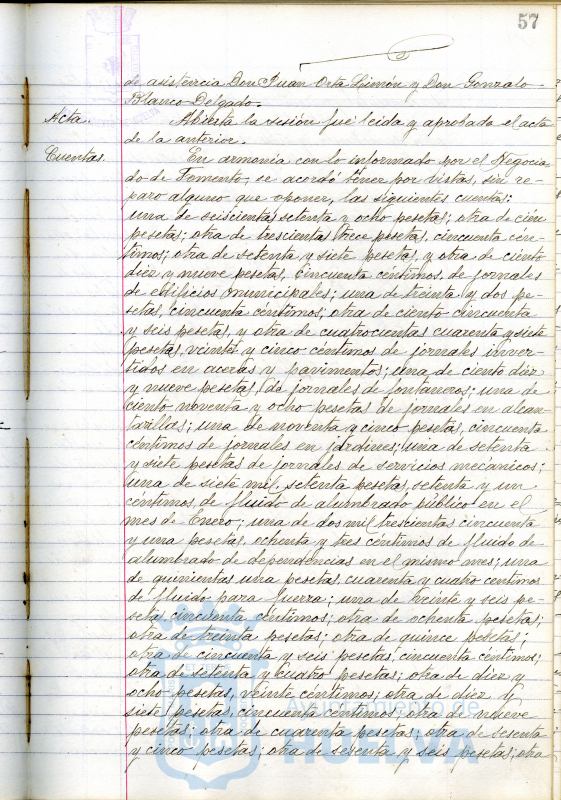 57
de asistencia Don Juan Orta Limón y Don Gonzalo
Blanco Delgado.
Acta. Abierta la sesión fué leida y aprobada el acta
de la anterior.
Cuentas. En armonía con lo informado por el Negocia-
do de Fomento, se acordó tener por vistas, sin re-
paro alguno que oponer, las siguientes cuentas:
una de seiscientas setenta y ocho pesetas; otra de cien
pesetas; otra de trescientas trece pesetas, cincuenta cén-
timos; otra de setenta y siete pesetas, y otra de ciento
diez y nueve pesetas, cincuenta céntimos, de jornales
de edificios municipales; una de treinta y dos pe-
setas, cincuenta céntimos; otra de ciento cincuenta
y seis pesetas, y otra de cuatrocientas cuarenta y siete
pesetas, veinte y cinco céntimos de jornales inver-
tidos en aceras y pavimentos; una de ciento diez
y nueve pesetas, de jornales de fontaneros; una de
ciento noventa y ocho pesetas de jornales en alcan-
tarillas; una de noventa y cinco pesetas, cincuenta
céntimos de jornales en jardines; una de setenta
y siete pesetas de jornales de servicios mecanicos;
una de siete mil, setenta pesetas, setenta y un
céntimos, de fluido de alumbrado público en el
mes de Enero; una de dos mil trescientas cincuenta
y una pesetas, ochenta y tres céntimos de fluido de
alumbrado de dependencias en el mismo mes; una
de quinientas una pesetas, cuarenta y cuatro centimos
de fluido para fuerza; una de veinte y seis pe-
setas, cincuenta céntimos; otra de ochenta pesetas;
otra de treinta pesetas; otra de quince pesetas;
otra de cincuenta y seis pesetas, cincuenta céntimos;
otra de setenta y cuatro pesetas; otra de diez y
ocho pesetas, veinte céntimos; otra de diez y
siete pesetas, cincuenta céntimos; otra de nueve
pesetas; otra de cuarenta pesetas; otra de sesenta
y cinco pesetas; otra de sesenta y seis pesetas; otra
Ayuntamiento de
HUELVA